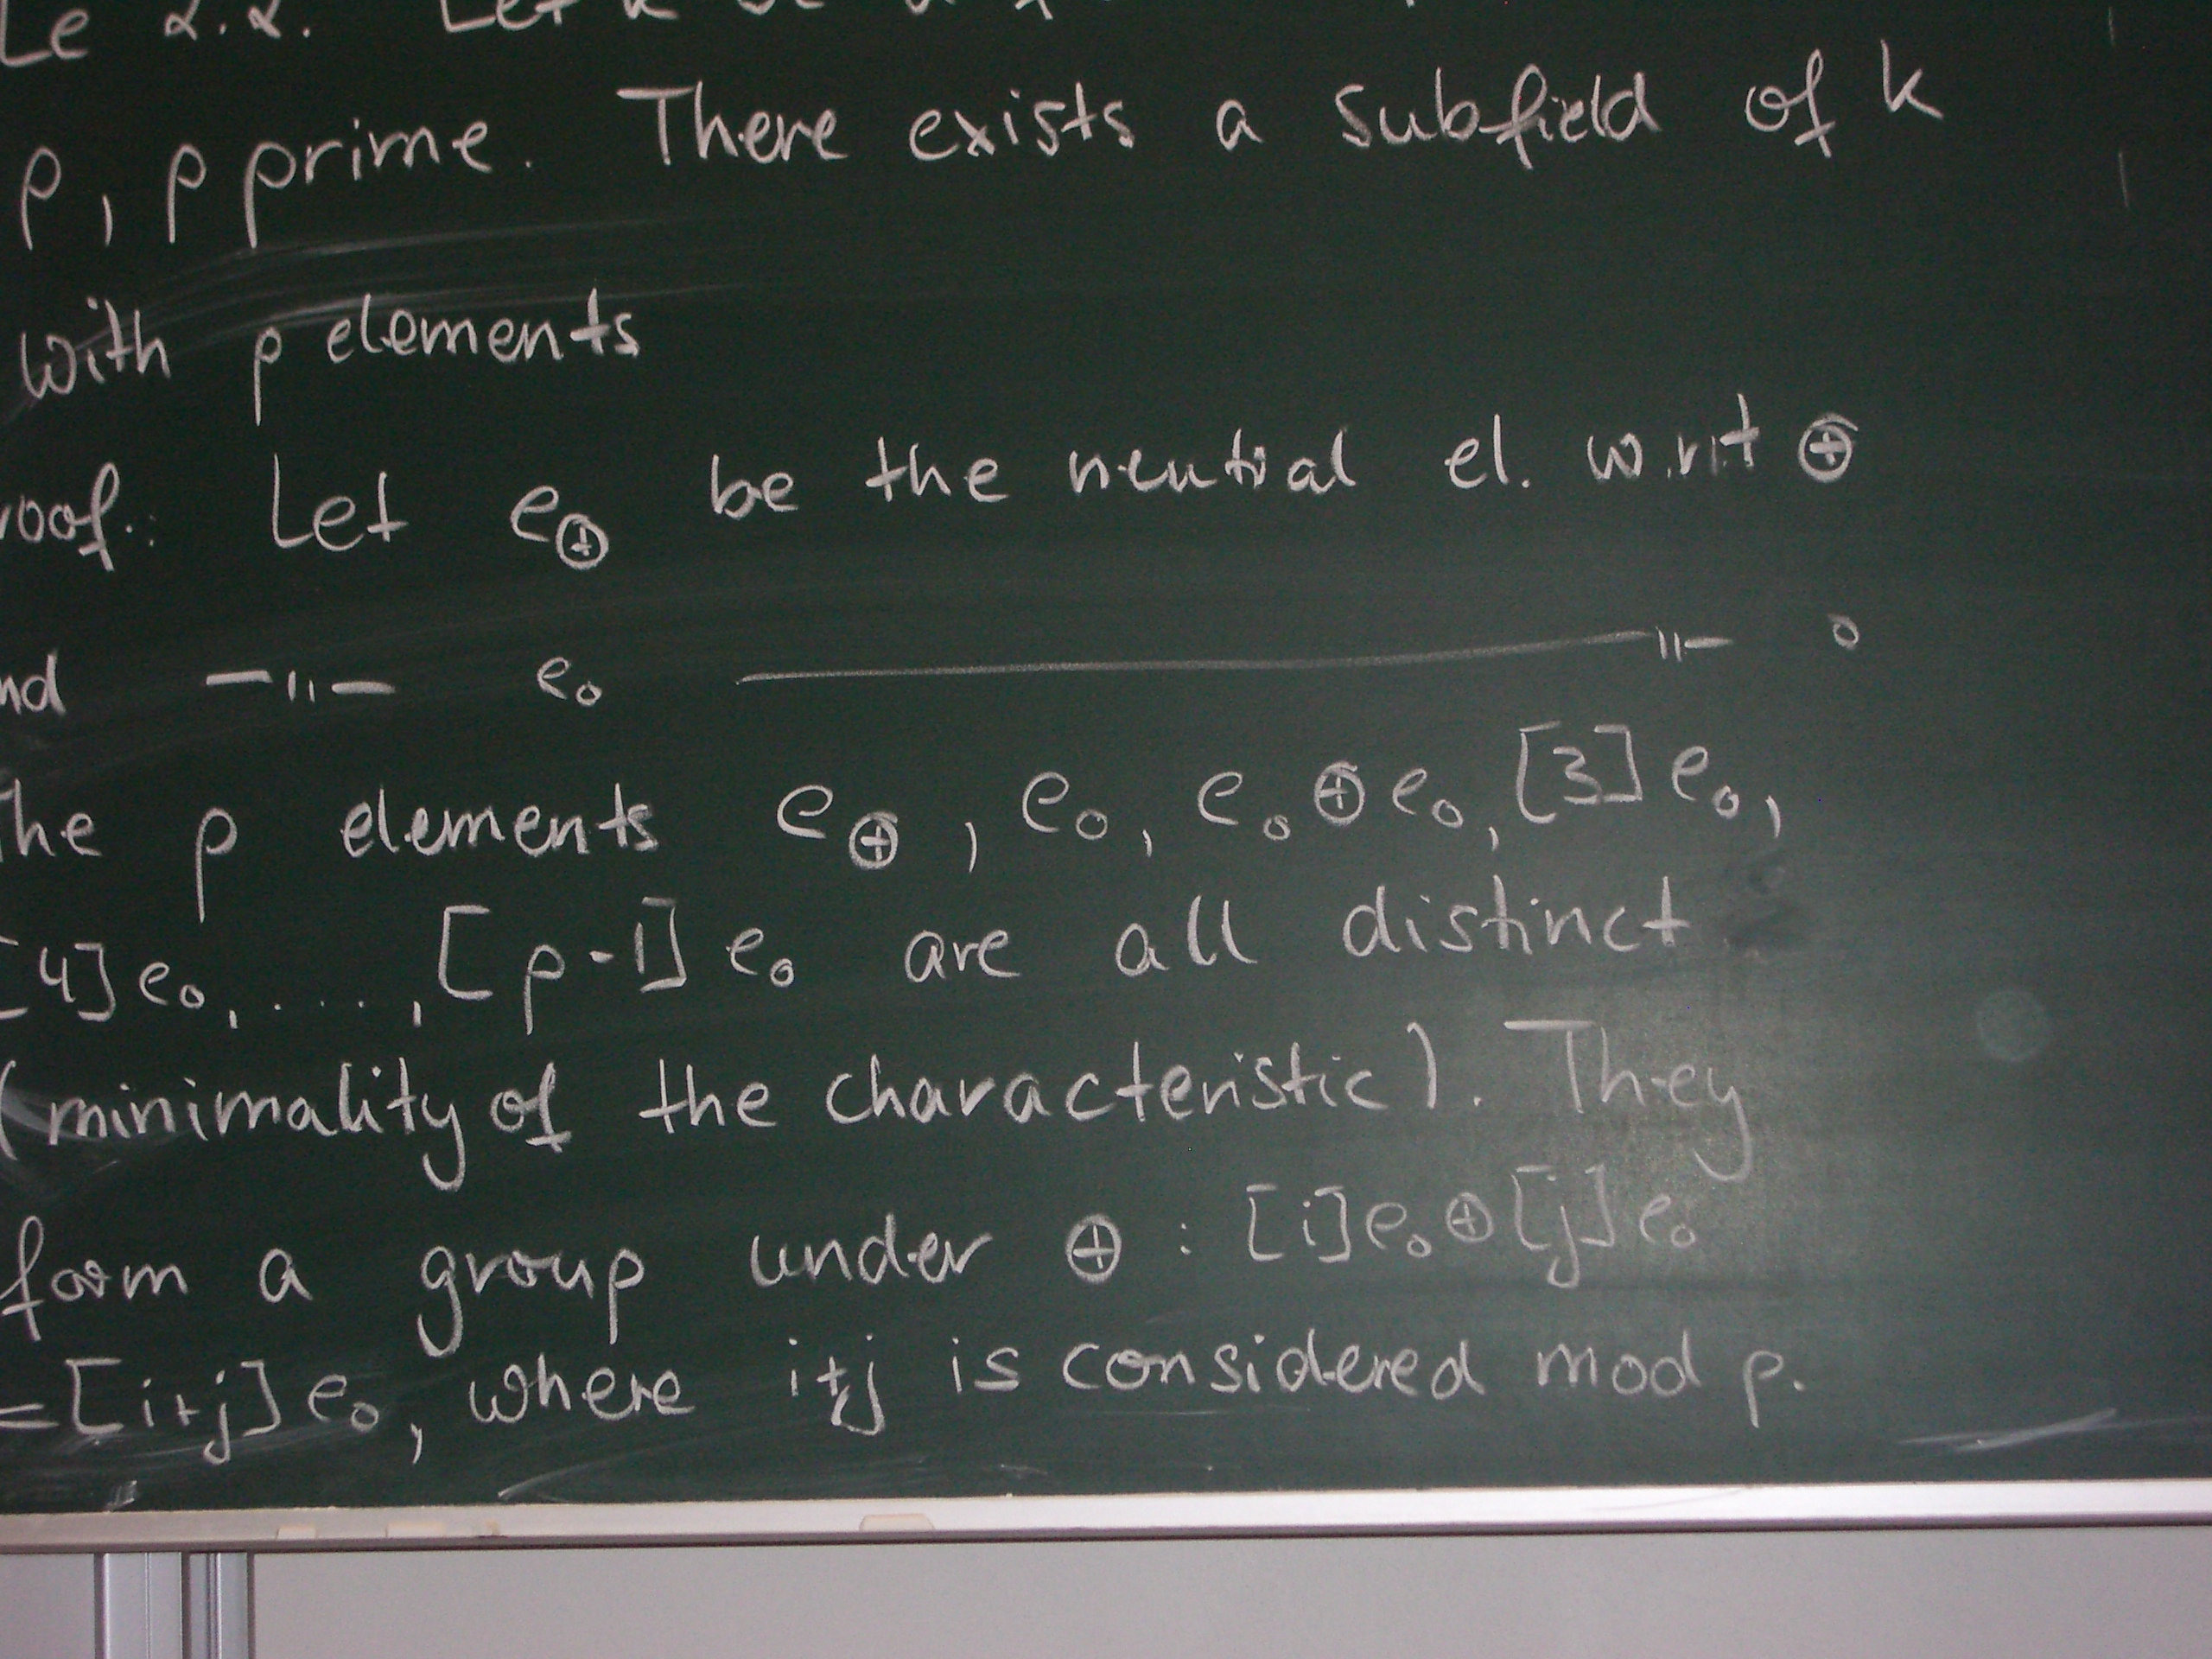 Le 2.2. Let k be a
p, p prime. There exists a subfield of k
with p elements
roof: Let e⊕ be the neutral el. w.r.t ⊕
nd —"— e∘ —"— ∘
he p elements e⊕, e∘, e∘⊕e∘, [3]e∘,
[4]e∘,....,[p-1]e∘ are all distinct
(minimality of the characteristic). They
form a group under ⊕ : [i]e∘⊕[j]e∘
=[i+j]e∘, where i+j is considered mod p.